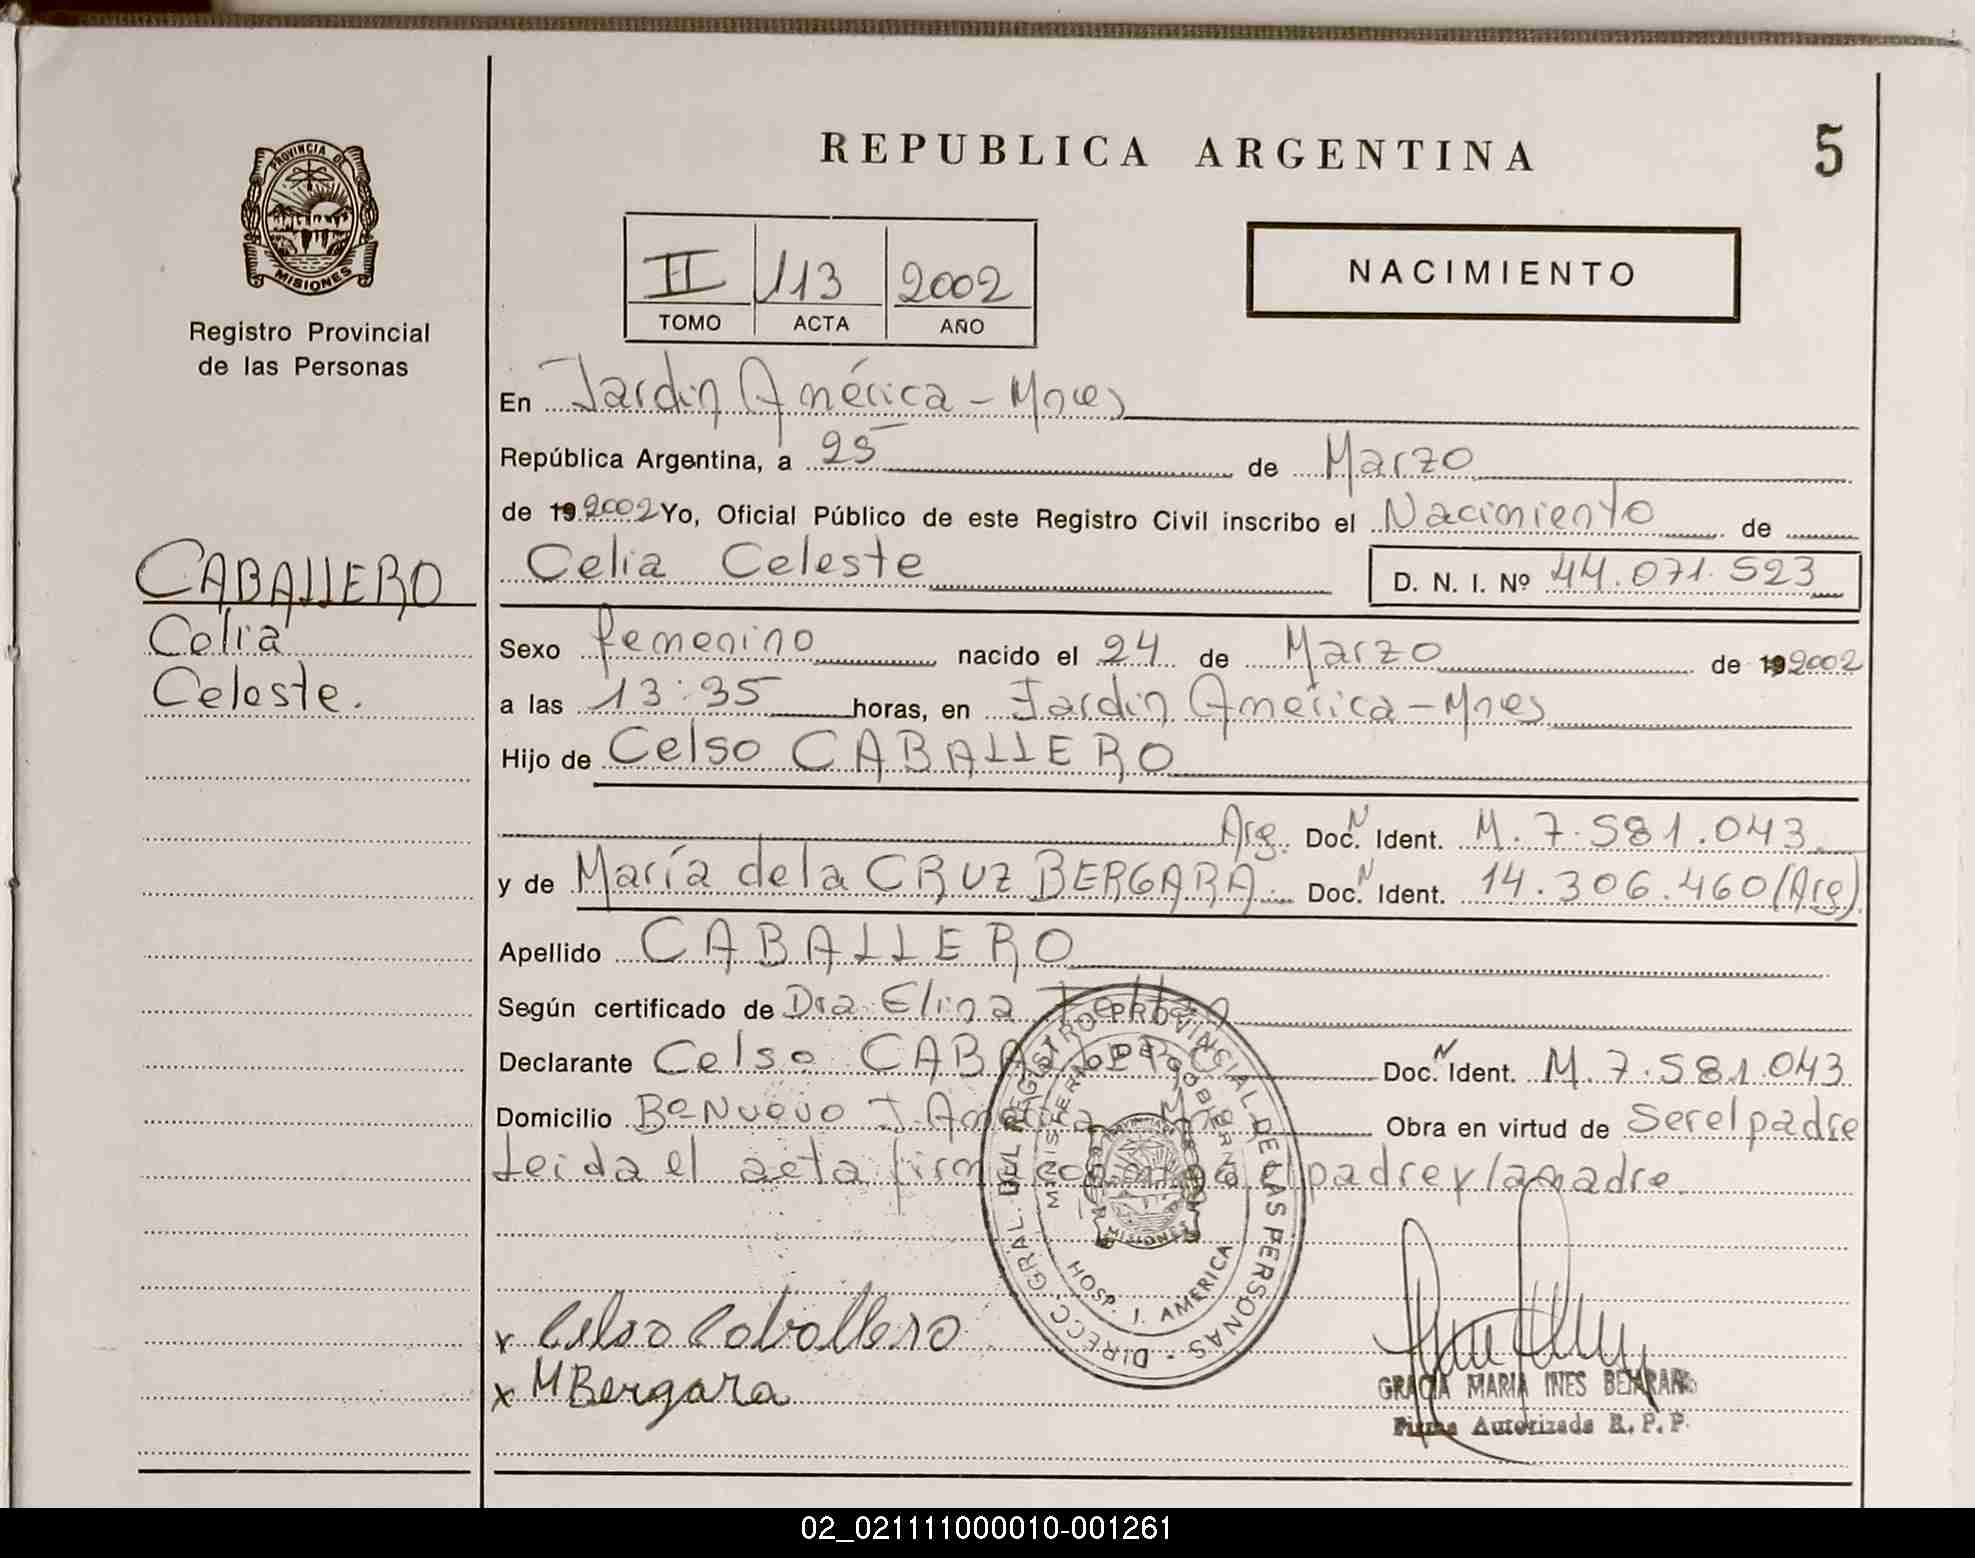 REPUBLICA ARGENTINA
5
PROVINCIA DE
MISIONES
Registro Provincial
de las Personas
II 113 2002
TOMO ACTA AÑO
NACIMIENTO
En Jardin América - Mnes
República Argentina, a 25 de Marzo
de 19 2002 Yo, Oficial Público de este Registro Civil inscribo el Nacimiento de
Celia Celeste D. N. I. Nº 44.071.523
CABALLERO
Celia
Celeste.
Sexo femenino nacido el 24 de Marzo de 19 2002
a las 13:35 horas, en Jardin América - Mnes
Hijo de Celso CABALLERO
Arg. Doc. N Ident. M. 7.581.043
y de María de la CRUZ BERGARA Doc. N Ident. 14.306.460 (Arg)
Apellido CABALLERO
Según certificado de Dra Elina
Declarante Celso CABALLERO Doc. N Ident. M. 7.581.043
Domicilio Bº Nuevo J. América Mnes Obra en virtud de ser el padre
Leida el acta firma conmigo el padre y la madre.
DIRECC. GRAL. DEL REGISTRO PROVINCIAL DE LAS PERSONAS
MINISTERIO DE GOBIERNO
MISIONES
HOSP. J. AMERICA
x Celso Caballero
x M Bergara
GRACIA MARIA INES BEJARANO
Firma Autorizada R. P. P.
02_021111000010-001261